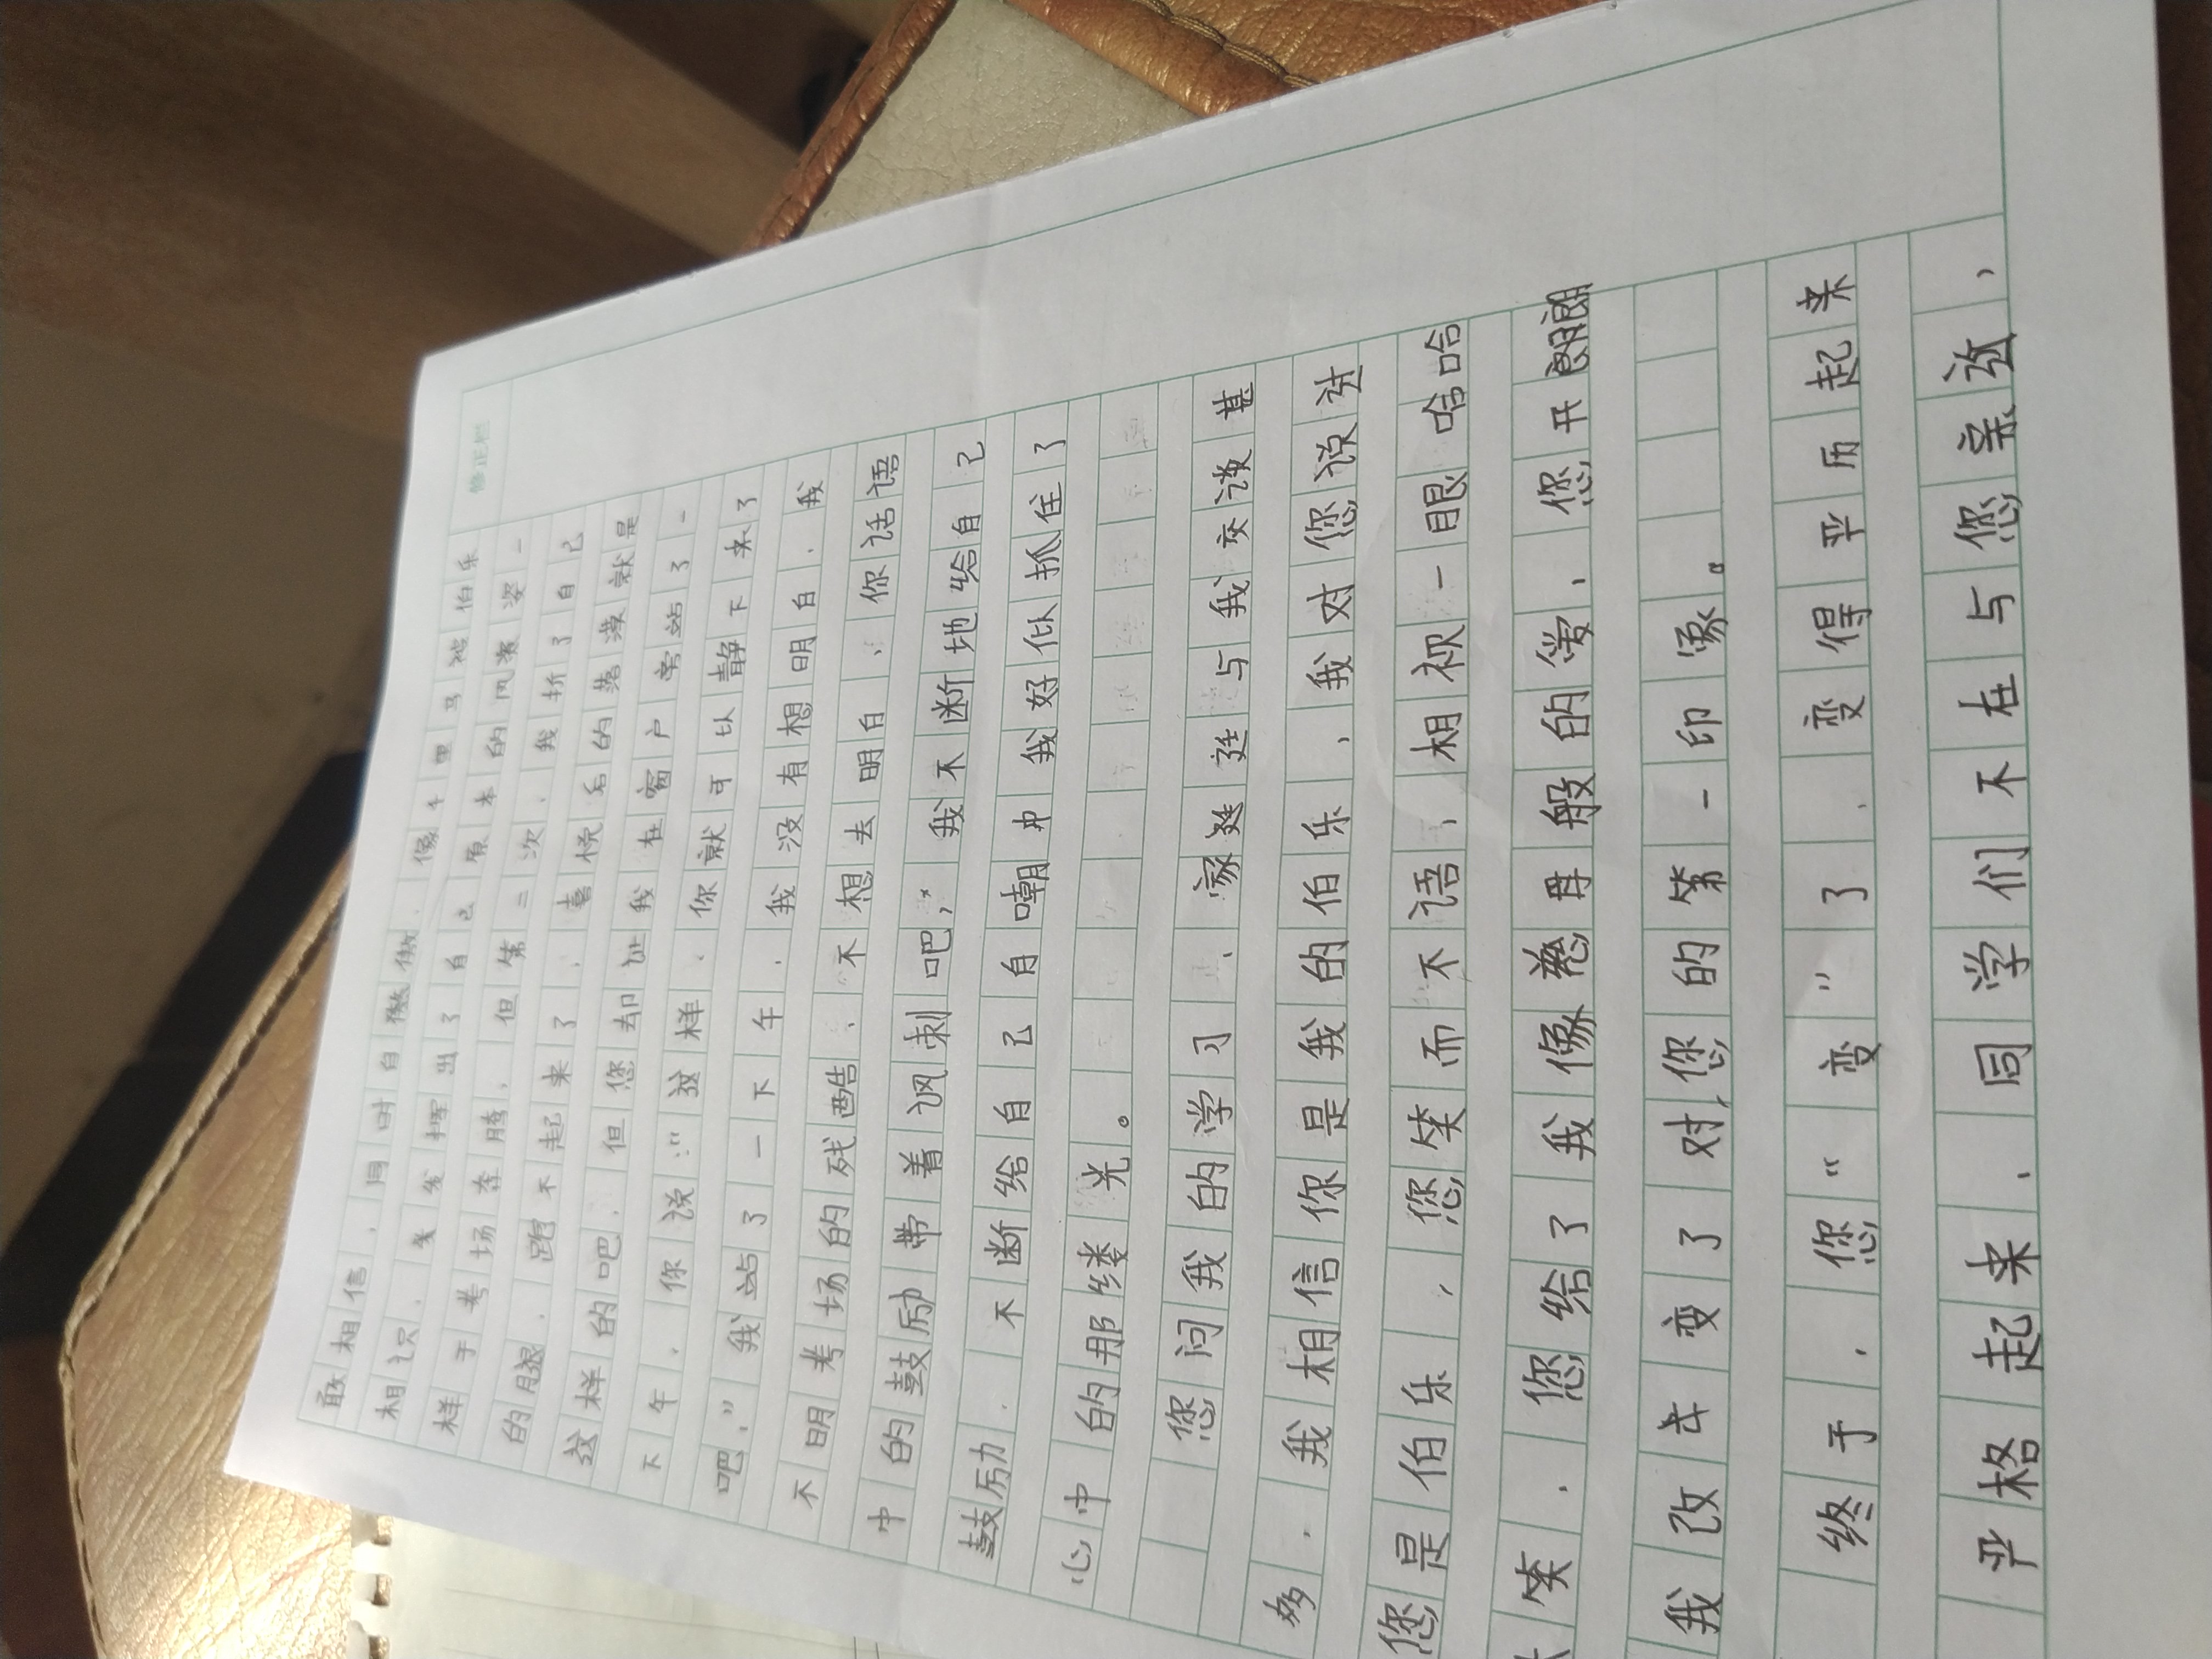 修正栏
敢相信,同时自傲傲,像千里马被伯乐
相识,发挥出了自己原本的风姿一
样于考场奔腾,但第二次,我折了自己
的腿,跑不起来了,喜悦后的落漠就是
这样的吧,但您却让我在窗户旁站了一
下午,你说:"这样,你就可以静下来了
吧,"我站了一下午,我没有想明白,我
不明考场的残酷,不想去明白,你话语
中的鼓励带着讽刺吧,"我不断地给自己
鼓励,不断给自己自嘲中我好似抓住了
心中的那缕光。
您问我的学习,家廷与我交谈甚
多,我相信你是我的伯乐,我对您说过
您是伯乐,您笑而不语,相视一眼哈哈
大笑,您给了我像慈母般的爱,您开朗
我改变了对您的第一印象。
终于,您"变"了,变得严历起来
严格起来,同学们不在与您亲近,